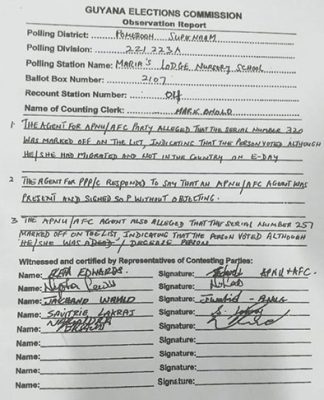 GUYANA ELECTIONS COMMISSION
Observation Report
Polling District: POMEROON SUPENAAM
Polling Division: 221223A
Polling Station Name: MARIA'S LODGE NURSERY SCHOOL
Ballot Box Number: 2107
Recount Station Number: 04
Name of Counting Clerk: MARK
1 THE AGENT FOR APNU/AFC PARTY ALLEGED THAT THE SERIAL NUMBER 320
WAS MARKED OFF ON THE LIST, INDICATING THAT THE PERSON VOTED ALTHOUGH
HE/SHE HAD MIGRATED AND NOT IN THE COUNTRY ON E-DAY
2 THE AGENT FOR PPP/C RESPONDED TO SAY THAT AN APNU/AFC AGENT WAS
PRESENT AND SIGNED SOP WITHOUT OBJECTING.
3 THE APNU/AFC AGENT ALSO ALLEGED THAT THE SERIAL NUMBER 257
MARKED OFF ON THE LIST, INDICATING THAT THE PERSON VOTED ALTHOUGH
HE/SHE WAS A DEAD / PERSON
Witnessed and certified by Representatives of Contesting Parties:
Name: EDWARDS. Signature: APNU+AFC.
Name: Signature:
Name: Signature:
Name: SAVITRIE LAKRAJ Signature:
Name: Signature:
Name: Signature:
Name: Signature:
Name: Signature:
Name: Signature: